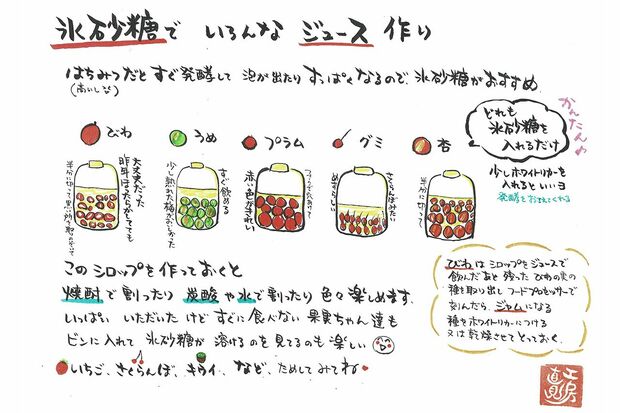 氷砂糖で いろんな ジュース 作り
はちみつだと すぐ発酵して 泡が出たり すっぱくなるので、氷砂糖がおすすめ
(おいしいな)
びわ
うめ
プラム
グミ
杏
どれも
氷砂糖を
入れるだけ
かんたん
少しホワイトリカーを
入れるといいヨ
発酵をおさえてくれる
大丈夫だった
すぐ飲める
少し熟れた梅が
赤い色がきれい
さくらんぼみたい
めずらしい
半分に切って
このシロップを作っておくと
焼酎で割ったり 炭酸や水で割ったり 色々楽しめます.
いっぱい いただいたけど すぐに食べない 果実ちゃん達も
ビンに入れて 氷砂糖が 溶けるのを 見てるのも 楽しい
いちご、さくらんぼ、キウイ、など、ためしてみてね
びわは シロップをジュースで
飲んだあと 残った びわの実の
種を取り出し フードプロセッサーで
刻んだら ジャムになる
種をホワイトリカーにつける
又は乾燥させてとっておく.
工房